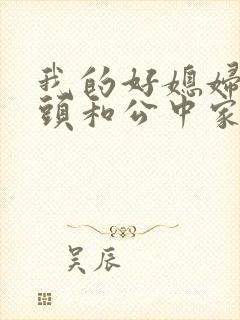 我的好媳婦
頭和公中家
吴辰